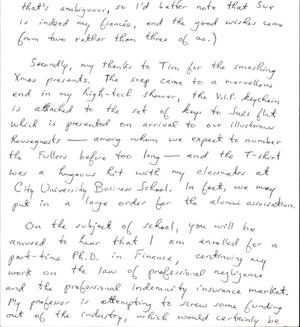 that's ambiguous, so I'd better note that Sue
is indeed my fiancée, and the good wishes came
from two rather than three of us.)
Secondly, my thanks to Tim for the smashing
Xmas presents. The soap came to a marvellous
end in my high-tech shower, the V.I.P. keychain
is attached to the set of keys to Sue's flat
which is presented on arrival to our illustrious
houseguests — among whom we expect to number
the Fullers before too long — and the T-shirt
was a hugeous hit with my classmates at
City University Business School. In fact, we may
put in a large order for the alumni association.
On the subject of school, you will be
amused to hear that I am enrolled for a
part-time Ph.D. in Finance, continuing my
work on the law of professional negligence
and the professional indemnity insurance market.
My professor is attempting to screw some funding
out of the industry, which would certainly be